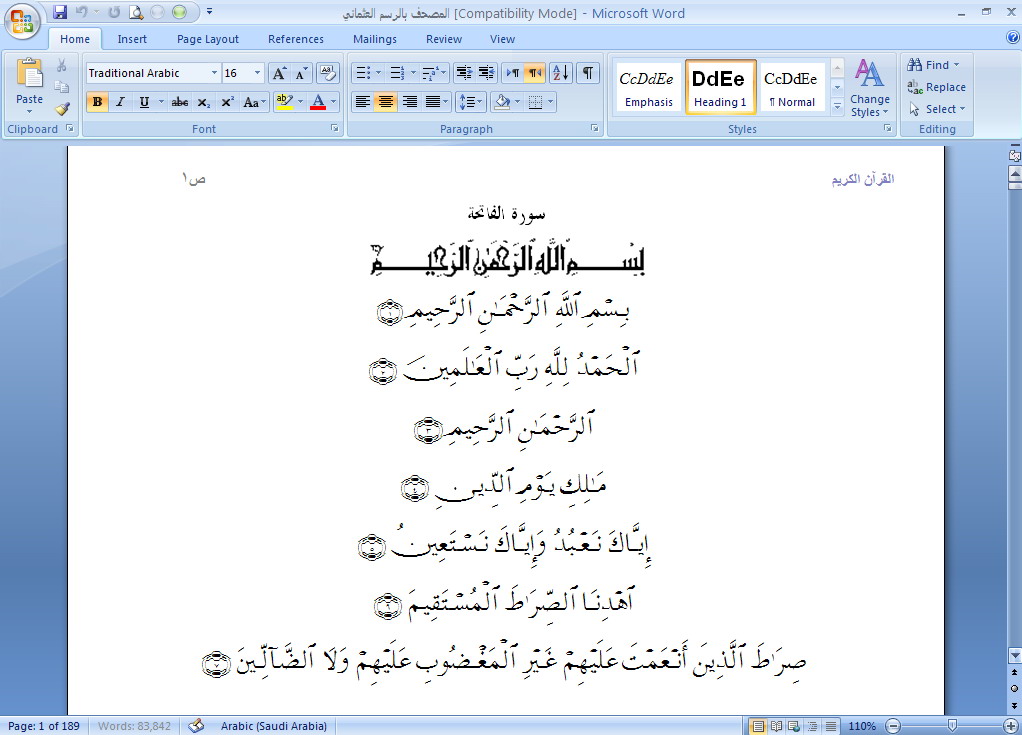 المصحف بالرسم العثماني [Compatibility Mode] - Microsoft Word
Home Insert Page Layout References Mailings Review View
Traditional Arabic 16 A A Aa
Paste
B I U abc x₂ x² Aa ab A
AZ ¶
CcDdEe DdEe CcDdEe
Emphasis Heading 1 ¶ Normal
Change Styles
Find
Replace
Select
Clipboard Font Paragraph Styles Editing
القرآن الكريم ص١
سورة الفاتحة
بِسْمِ ٱللَّهِ ٱلرَّحْمَٰنِ ٱلرَّحِيمِ
بِسْمِ ٱللَّهِ ٱلرَّحْمَٰنِ ٱلرَّحِيمِ ١
ٱلْحَمْدُ لِلَّهِ رَبِّ ٱلْعَٰلَمِينَ ٢
ٱلرَّحْمَٰنِ ٱلرَّحِيمِ ٣
مَٰلِكِ يَوْمِ ٱلدِّينِ ٤
إِيَّاكَ نَعْبُدُ وَإِيَّاكَ نَسْتَعِينُ ٥
ٱهْدِنَا ٱلصِّرَٰطَ ٱلْمُسْتَقِيمَ ٦
صِرَٰطَ ٱلَّذِينَ أَنْعَمْتَ عَلَيْهِمْ غَيْرِ ٱلْمَغْضُوبِ عَلَيْهِمْ وَلَا ٱلضَّآلِّينَ ٧
Page: 1 of 189 Words: 83,842 Arabic (Saudi Arabia) 110%